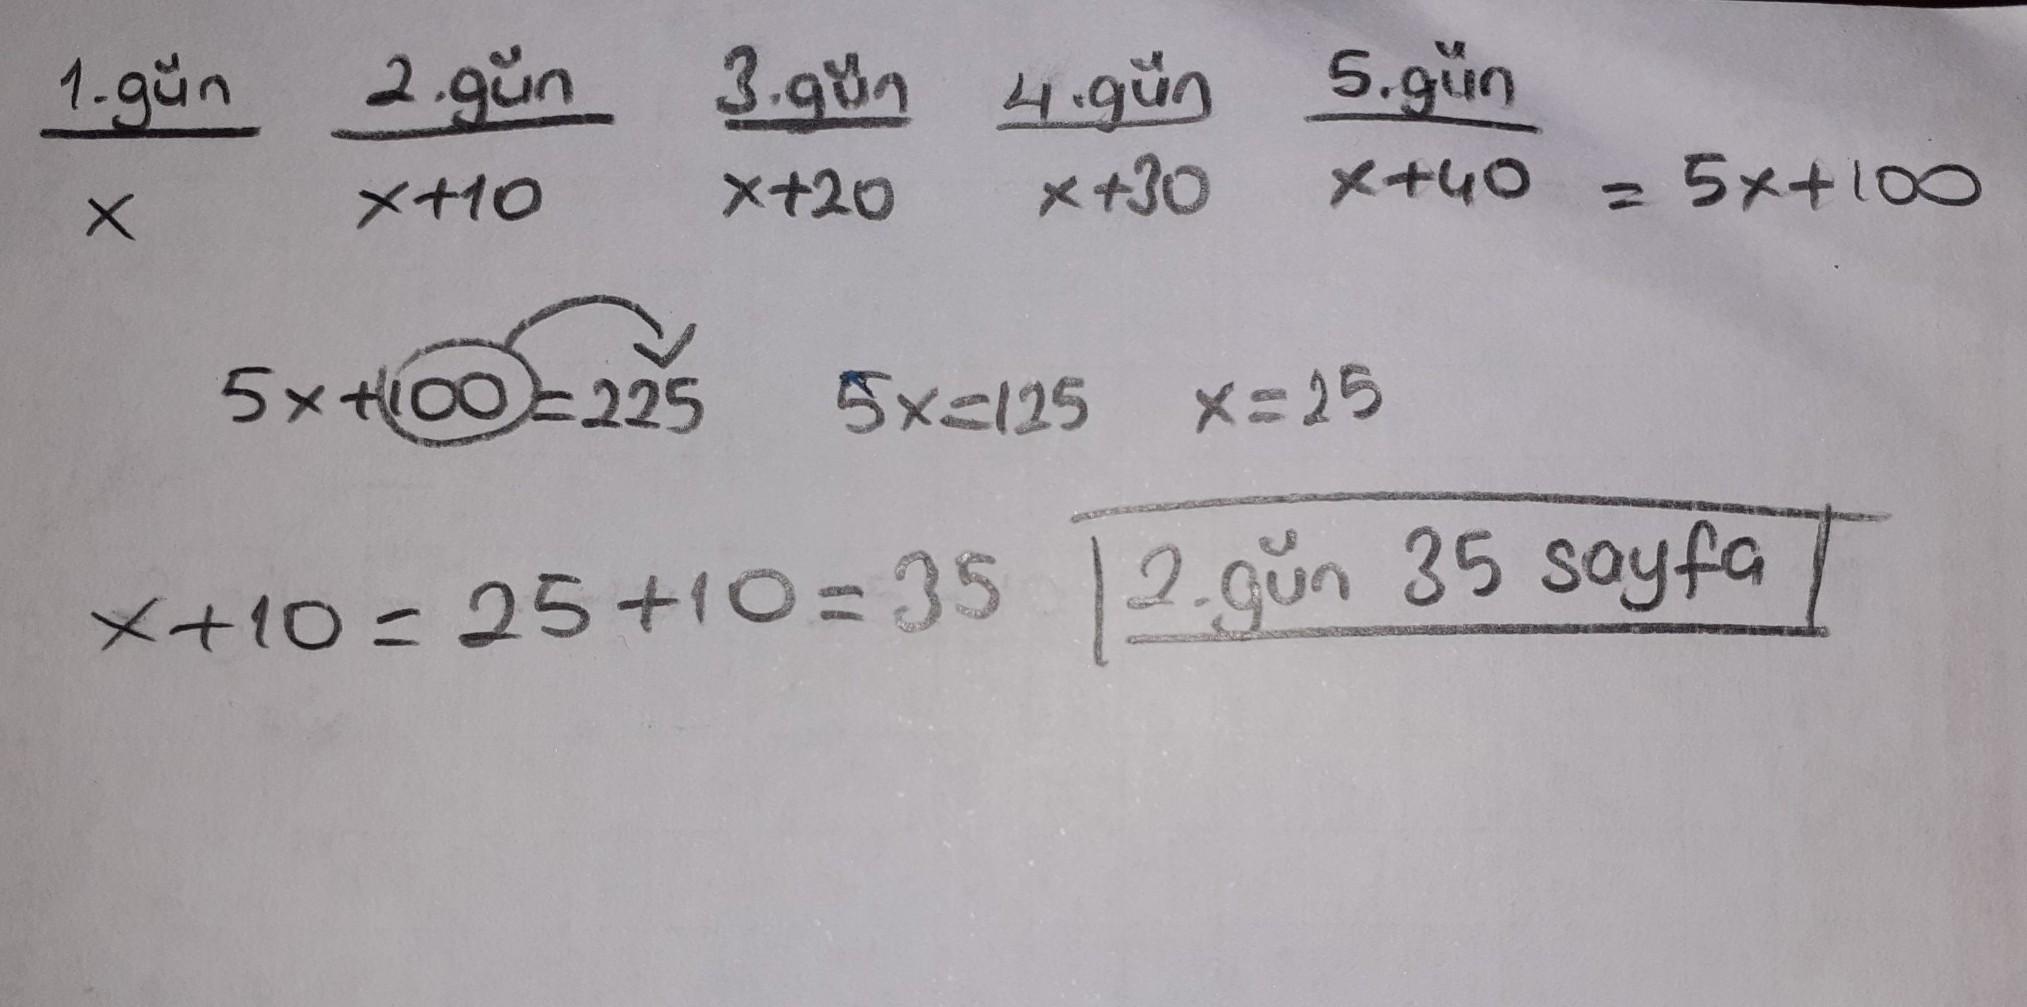 1.gün 2.gün 3.gün 4.gün 5.gün
x x+10 x+20 x+30 x+40 = 5x+100
5x+100=225 5x=125 x=25
x+10=25+10=35 2.gün 35 sayfa